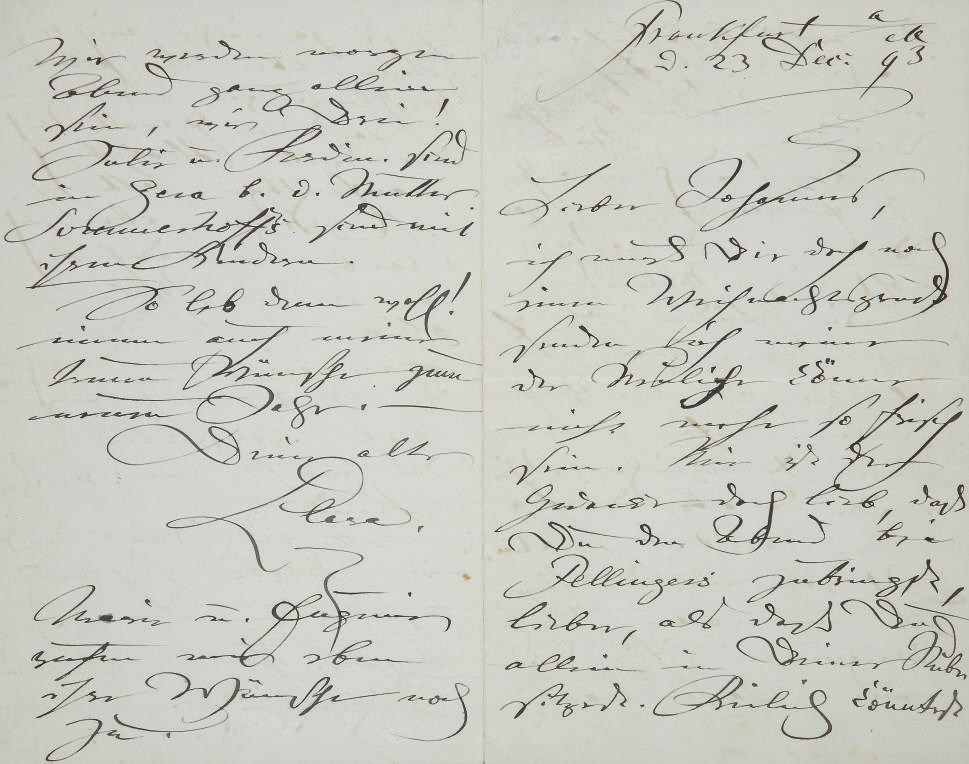 Frankfurt a/M
d. 23 Dec. 93
Lieber Johannes,
ich muß Dir doch noch
einen Weihnachtsgruß
senden, meiner
der könne
nicht mehr so frisch
sein. Mir ist der
Gedanke doch lieb, daß
Du den Abend bei
Fellingers zubringst,
lieber, als daß Du
allein in Deiner Stube
sitzest. Freilich könntest
Wir werden morgen
Abend ganz allein
sein, wir Drei!
Julie u. Ferdin. sind
in Gera b. d. Mutter.
Sommerhoffs sind mit
ihren Kindern.
So leb denn wohl!
nimm auch meine
treuen Wünsche zum
neuen Jahr. —
Deine alte
Clara.
Marie u. Eugenie
rufen mir eben
ihre Wünsche noch
zu.